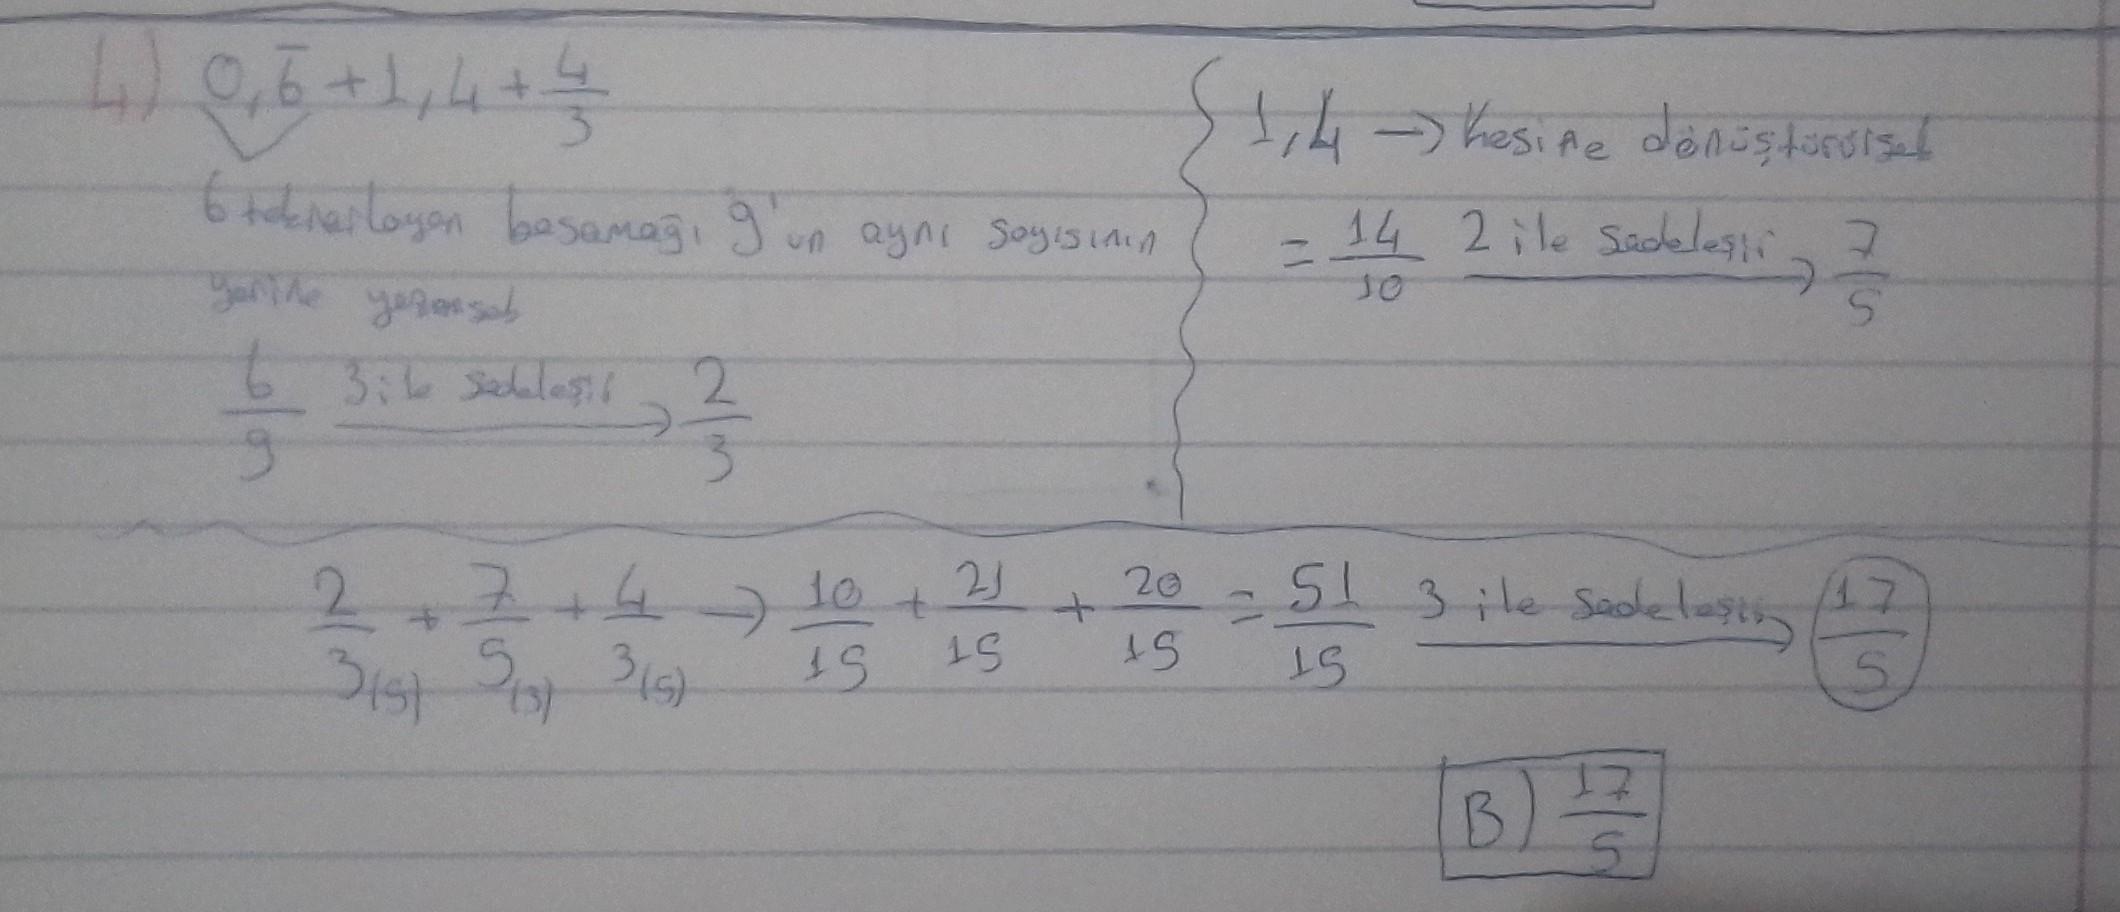 4) 0,6̅ + 1,4 + 4/3
6 tekrarlayan basamağı 9'un aynı sayısının
yerine yazarsak
6/9 3 ile sadeleşir → 2/3
1,4 → Kesire dönüştürürsek
= 14/10 2 ile sadeleşir → 7/5
2/3(5) + 7/5(3) + 4/3(5) → 10/15 + 21/15 + 20/15 = 51/15 3 ile sadeleşir → 17/5
B) 17/5